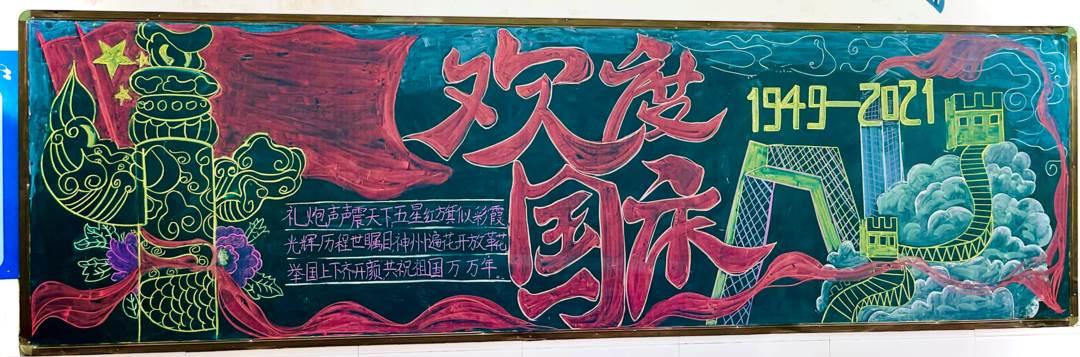 欢度
国庆
1949-2021
礼炮声声震天下五星红旗似彩霞
光辉历程世瞩目神州遍花开放萃花
举国上下齐开颜共祝祖国万万年.